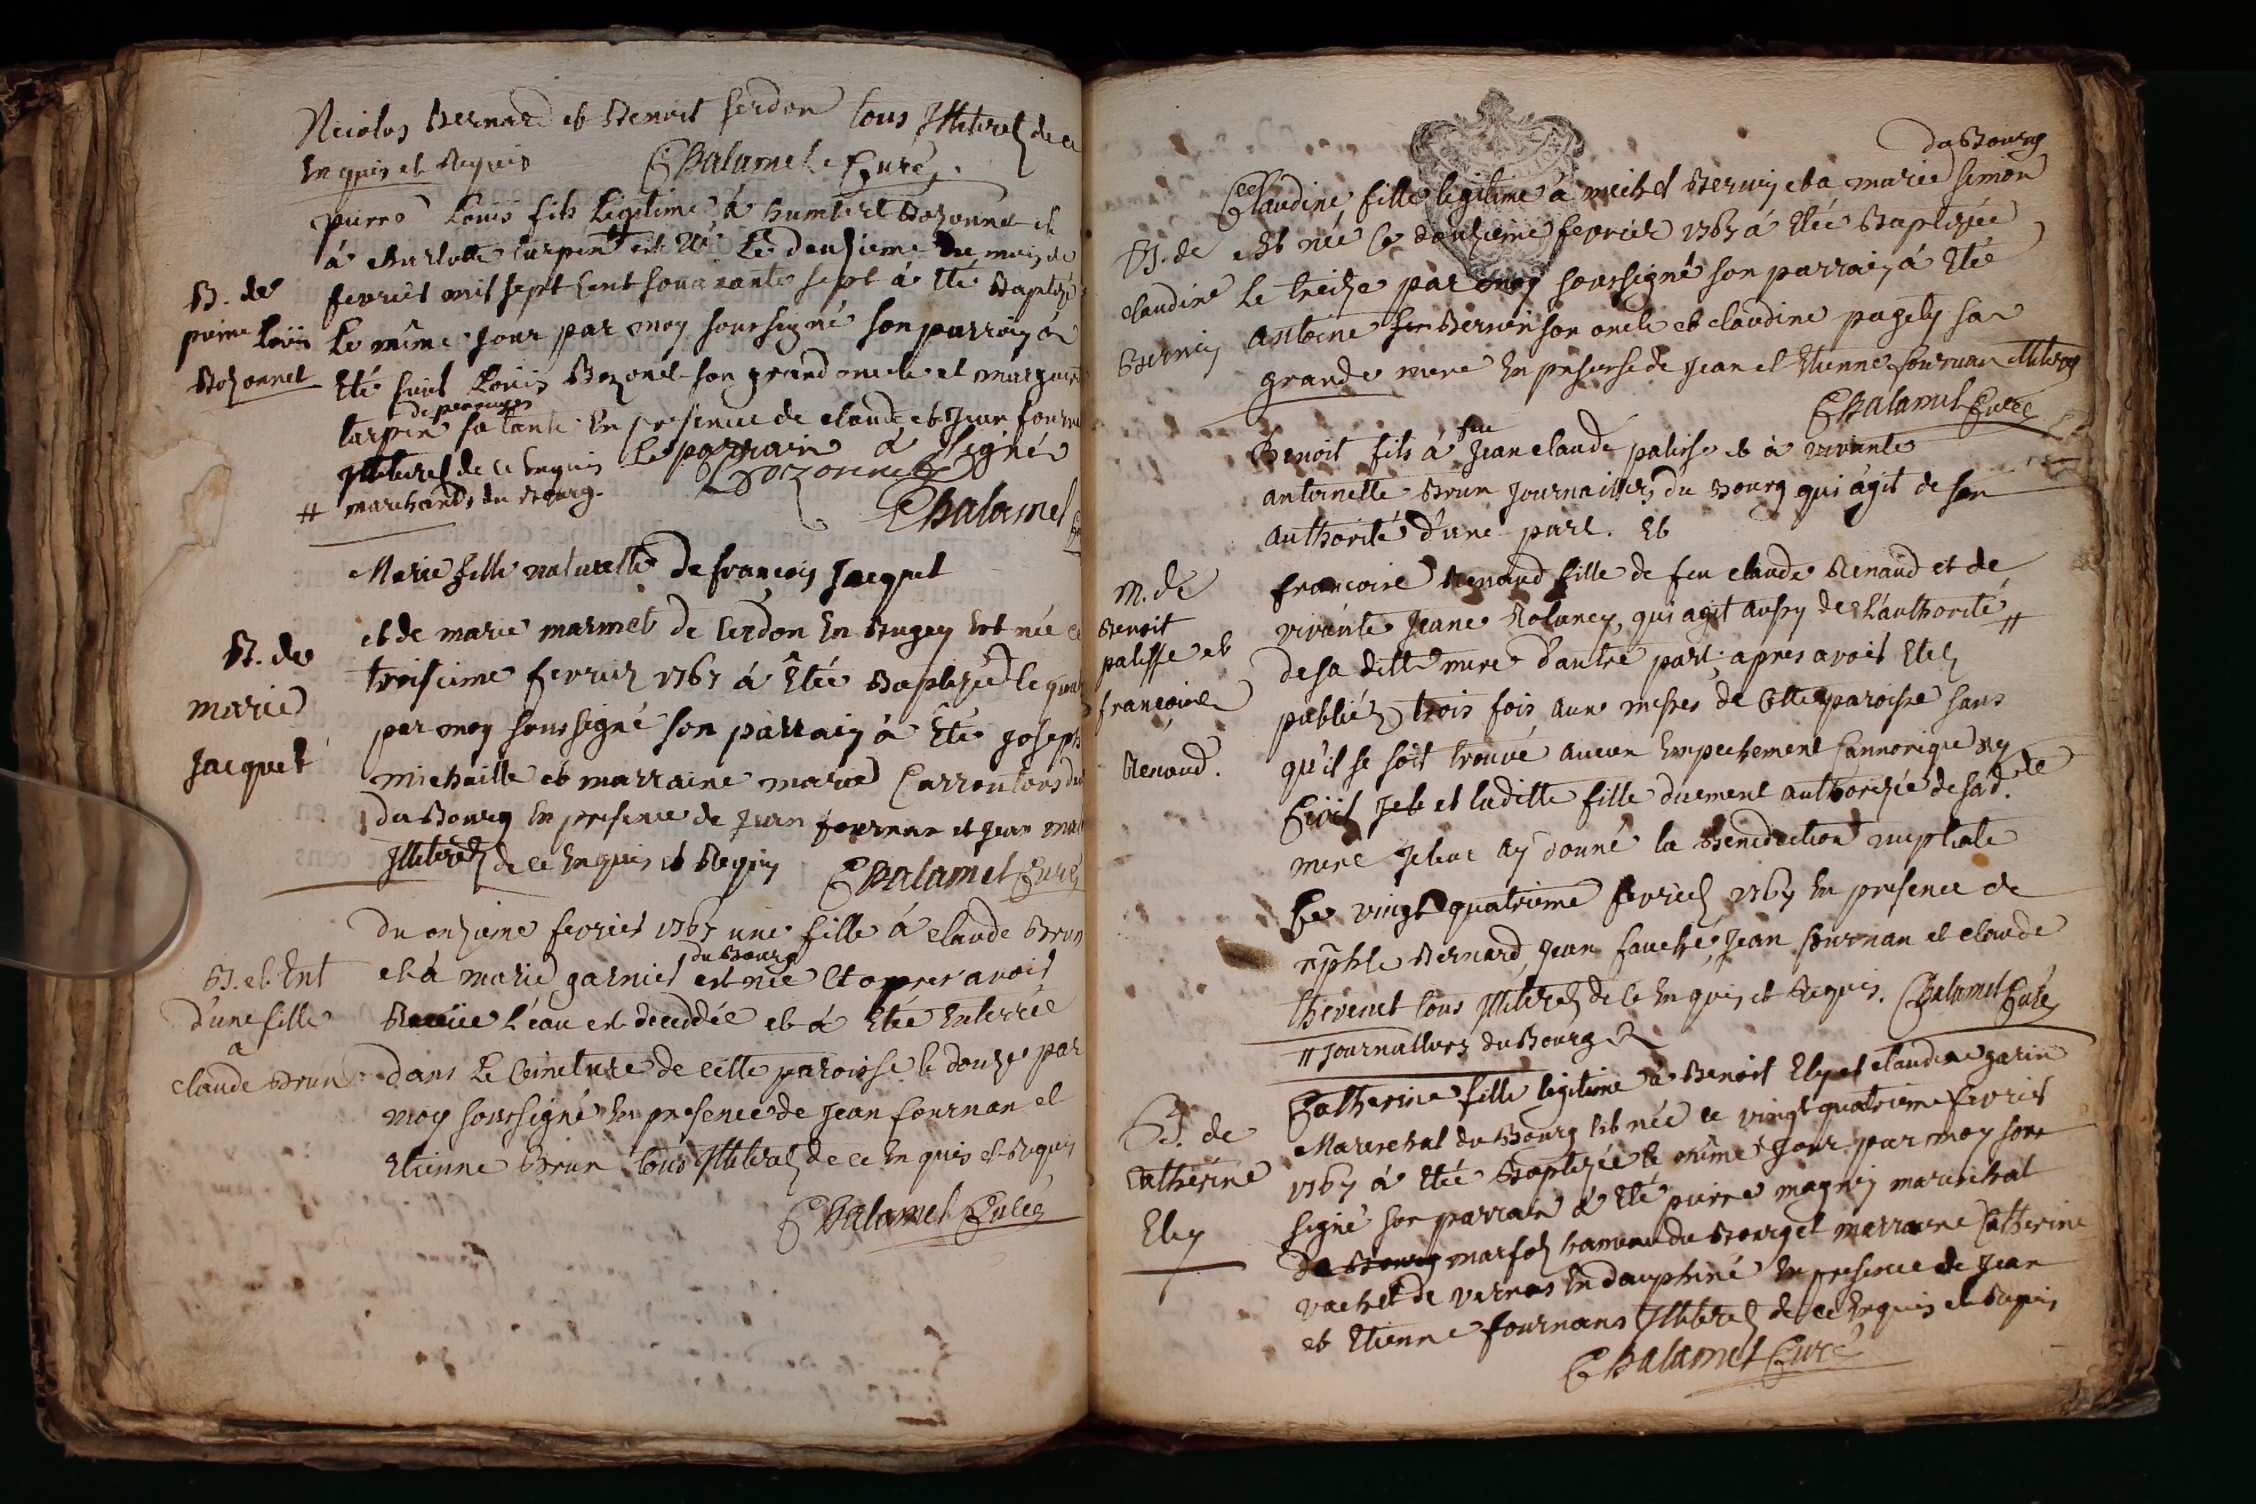 Nicolas Bernard et Benoit serdon tous Illiterez de ce
Enquis et Requis Chalamel Curé
pierre Louis fils Legitime à humbert Bozonnet et
à charlotte turpin est né Le douzieme du mois de
fevrier mil sept cent souaxante sept à êté Baptizé
B. de
pierre Loüis
Bozonnet
Le même jour par moy soussigné son parrain à
êté sieur Loüis Bozonet son grand oncle et marguerite
de perouges
turpin sa tante En presence de claude et Jean fournan
Illiterez de ce Enquis Le parrain à signé
Bozonnet
# marchands du Bourg.
Chalamel
Marie fille naturelle de françois Jacquet
et de marie marmet de Cerdon En Bugey Est née le
B. de
marie
Jacquet
troisieme fevrier 1767 à êtée Baptizée le
par moy soussigné son parrain à êté joseph
michaille et marraine marie Carron tous deux
du Bourg En presence de Jean fournan et Jean
Illiterez de ce Enquis et Requis Chalamel Curé
du onzieme fevrier 1767 une fille à claude Brun
du Bourg
et à marie garnier est née Et apres avoir
B. et Ent
d'une fille
a
claude Brun
Receüe L'eau est decedée et à êtée Enterrée
dans Le Cimeture de cette paroisse le douze par
moy soussigné En presence de Jean fournan et
Etienne Brun tous Illiterez de ce Enquis et Requis
Chalamel Curé
du Bourg
Claudine fille legitime à michel Bernin et a marie simon
B. de
claudine
Bernin
est née le douzieme fevrier 1767 à êtée Baptizée
Le treize par moy soussigné son parrain à êté
antoine Bernin son oncle et claudine pagely sa
grande mere En presence de Jean et Etienne fournan Illiterez
Chalamel Curé
feu
Benoit fils à Jean claude palisse et à vivante
antoinette Brun journaliers du Bourg qui âgit de son
authorité d'une part. Et
M. de
Benoit
palisse et
francoise
Renaud.
francoise Renaud fille de feu claude Renaud et de
vivante Jeane Rolancy, qui agit aussy de L'authorité #
de sa ditte mere d'autre part, apres avoir êtez
publiéz trois fois aux messes de cette paroisse sans
qu'il se soit trouvé aucun Empechement Cannonique ny
Civil Je et laditte fille duement authorizée de sad. te
mere Je leur ay donné la Benediction nuptiale
Le vingt quatrieme fevrier 1767 En presence de
Bernard, Jean fauché, Jean fournan et claude
thevenet tous Illiterez de ce Enquis et Requis. Chalamel Curé
# journalliers du Bourg
Catherine fille legitime à Benoit Eley et claudine garin
B. de
Catherine
Eley
Marechal du Bourg Est née le vingt quatrieme fevrier
1767 à êtée Baptizée le même jour par moy sous
signé son parrain à êté pierre magnin marechal
de Bourg marfoz hameau du Bourg et marraine Catherine
vachet de vernas En dauphiné En presence de Jean
et Etienne fournans Illiterez de ce Enquis et Requis
Chalamel Curé